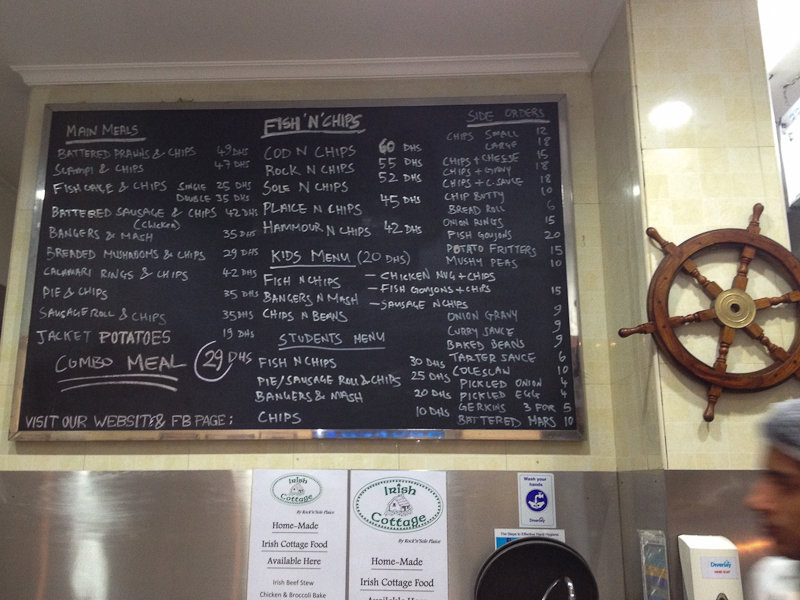 MAIN MEALS
BATTERED PRAWNS & CHIPS 49 DHS
SCAMPI & CHIPS 47 DHS
FISH CAKE & CHIPS SINGLE 25 DHS
DOUBLE 35 DHS
BATTERED SAUSAGE & CHIPS 42 DHS
(Chicken)
BANGERS & MASH 35 DHS
BREADED MUSHROOMS & CHIPS 29 DHS
CALAMARI RINGS & CHIPS 42 DHS
PIE & CHIPS 35 DHS
SAUSAGE ROLL & CHIPS 35 DHS
JACKET POTATOES 19 DHS
COMBO MEAL 29 DHS
VISIT OUR WEBSITE & FB PAGE:
FISH 'N' CHIPS
COD N CHIPS 60 DHS
ROCK N CHIPS 55 DHS
SOLE N CHIPS 52 DHS
PLAICE N CHIPS 45 DHS
HAMMOUR N CHIPS 42 DHS
KIDS MENU (20 DHS)
FISH N CHIPS – CHICKEN NUG + CHIPS
BANGERS N MASH – FISH GOUJONS + CHIPS
CHIPS N BEANS – SAUSAGE N CHIPS
STUDENTS MENU
FISH N CHIPS 30 DHS
PIE/SAUSAGE ROLL & CHIPS 25 DHS
BANGERS & MASH 20 DHS
CHIPS 10 DHS
SIDE ORDERS
CHIPS SMALL 12
LARGE 18
CHIPS + CHEESE 15
CHIPS + GRAVY 18
CHIPS + C-SAUCE 18
CHIP BUTTY 10
BREAD ROLL 6
ONION RINGS 15
FISH GOUJONS 20
POTATO FRITTERS 15
MUSHY PEAS 10
15
ONION GRAVY 9
CURRY SAUCE 9
BAKED BEANS 9
TARTER SAUCE 6
COLESLAW 10
PICKLED ONION 4
PICKLED EGG 4
GERKINS 3 FOR 5
BATTERED MARS 10
Irish
Cottage
By Rock'n'Sole Plaice
Home-Made
Irish Cottage Food
Available Here
Irish Beef Stew
Chicken & Broccoli Bake
Irish
Cottage
By Rock'n'Sole Plaice
Home-Made
Irish Cottage Food
Available Here
Wash your
hands
Diversey
Diversey